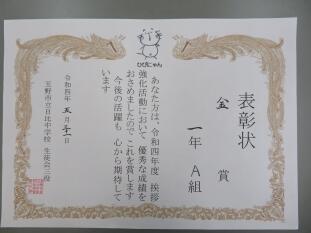 ひびにゃん
表彰状
金賞
一年A組
あなた方は、令和四年度 挨拶
強化活動において 優秀な成績を
おさめましたので これを賞します
今後の活躍も 心から期待して
います
令和四年 五月三十一日
玉野市立日比中学校 生徒会三役